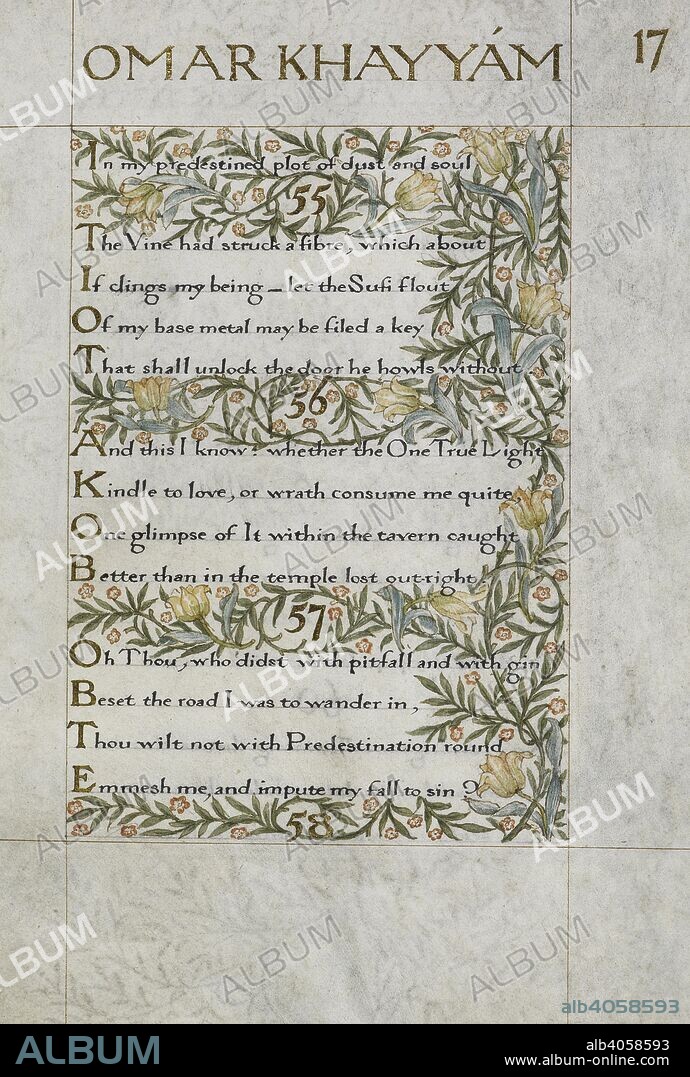 OMAR KHAYYÁM
17
In my predestined plot of dust and soul
55
The Vine had struck a fibre, which about
If clings my being – let the Sufi flout
Of my base metal may be filed a key
That shall unlock the door he howls without.
56
And this I know: whether the One True Light
Kindle to love, or wrath consume me quite,
One glimpse of It within the tavern caught
Better than in the temple lost out-right.
57
Oh Thou, who didst with pitfall and with gin
Beset the road I was to wander in,
Thou wilt not with Predestination round
Emmesh me, and impute my fall to sin ?
58
alb4058593
ALBUM
alb4058593
www.album-online.com